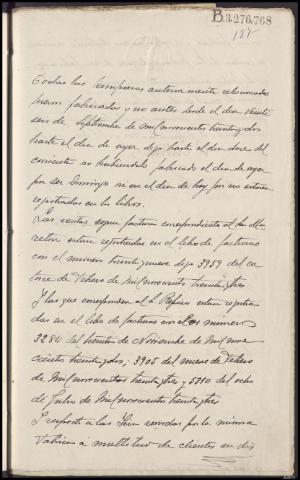 B3.276.768
185
Todas las lamparas anteriormente relacionadas
fueron fabricadas y no antes desde el dia veinte
seis de Septiembre de mil novecientos treinta y dos
hasta el dia de ayer digo hasta el dia doce del
corriente no habiendolo fabricado el dia de ayer
por ser Domingo ni en el dia de hoy por no estar
registradas en los libros.
Las ventas segun factura correspondiente al Sr.
estan registradas en el libro de facturas
con el numero treinta nueve digo 3959 del ca
torce de Febrero de mil novecientos treinta y tres
Y las que corresponden al Sr. estan registra
das en el libro de facturas con los numeros
3281 del treinta de Noviembre de mil nove
cientos treinta y dos; 3905 del nueve de Febrero
de mil novecientos treinta y tres y 5310 del ocho
de Julio de mil novecientos treinta y tres
Y respecto a las servidas por la misma
Fabrica a multitud de clientes en dis